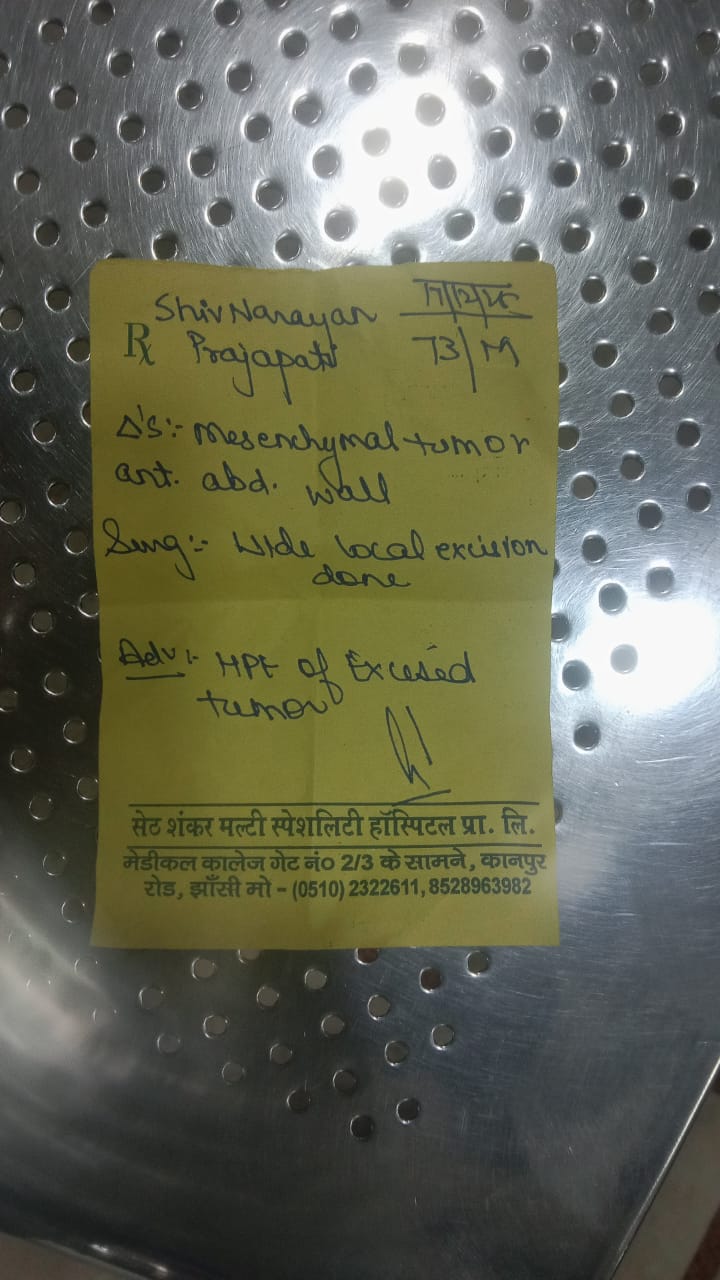 Shiv Narayan
Rx Prajapati 73/M
Δ's:- Mesenchymal tumor
ant. abd. wall
Surg:- Wide local excision
done
Adv:- HPE of Excised
tumor
सेठ शंकर मल्टी स्पेशलिटी हॉस्पिटल प्रा. लि.
मेडीकल कालेज गेट नं० 2/3 के सामने, कानपुर
रोड, झाँसी मो - (0510) 2322611, 8528963982